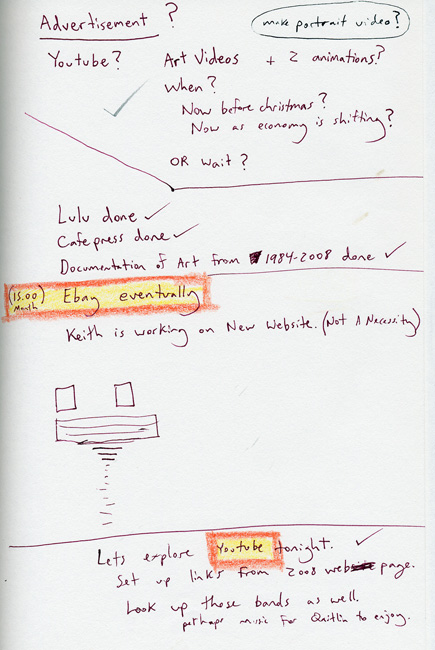 Advertisement ?
make portrait video?
Youtube? Art Videos + 2 animations?
When?
Now before christmas?
Now as economy is shifting?
OR wait?
Lulu done ✓
Cafepress done ✓
Documentation of Art from 1984-2008 done ✓
(15.00) Month Ebay eventually
Keith is working on New Website. (Not A Necessity)
Lets explore Youtube tonight. ✓
Set up links from 2008 web page.
Look up those bands as well.
perhaps music for to enjoy.